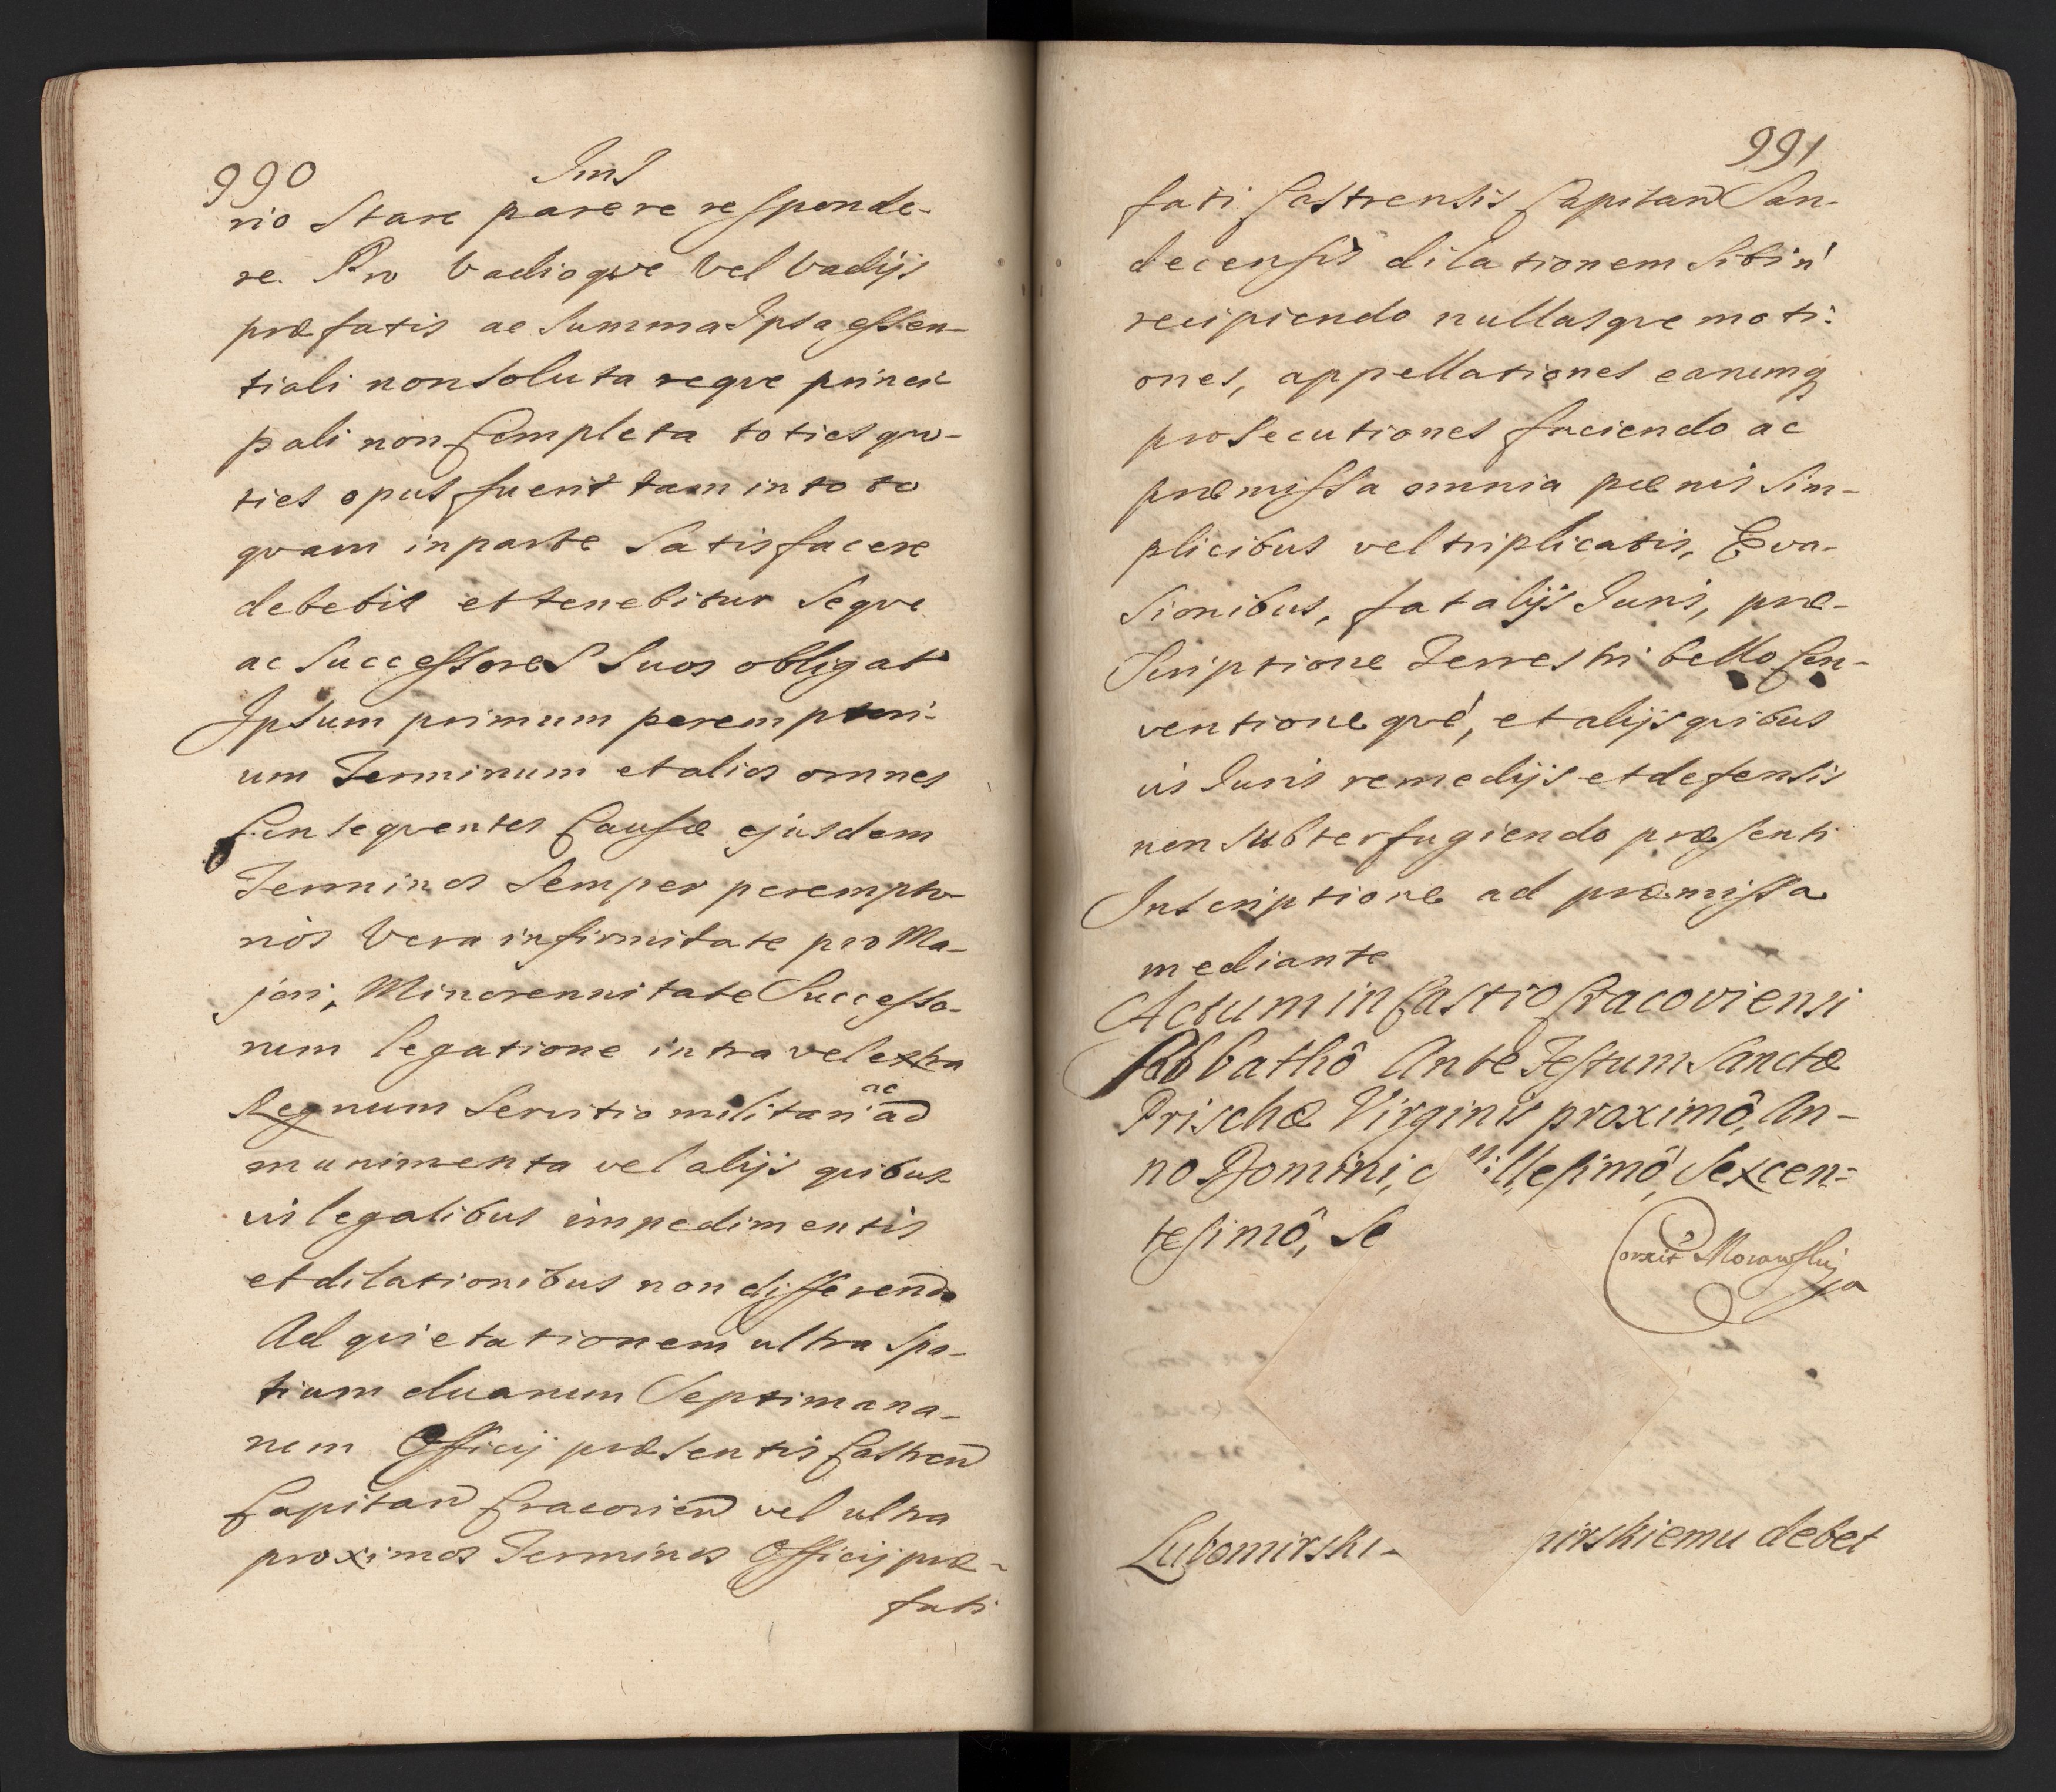 990
Juris
rio Stare parere responde-
re. Pro Vadioqve Vel Vadijs
præfatis ac Summa Ipsa essen-
tiali non Soluta reqve princi
pali non Completa toties quo-
ties opus fuerit tam in toto
qvam in parte Satisfacere
debebit et tenebitur Seqve
ac Successores Suos obligat
Ipsum primum peremptori-
um Terminum et alios omnes
Consequentes Causæ ejusdem
Terminos Semper perempto-
rios Vera infirmitate pro Ma-
jori, Minorennitate Successo-
rum legatione intra vel extra
ac
Regnum Servitio militari ad
munimenta vel alijs quibus-
vis legalibus impedimentis
et dilationibus non differendo
Ad quietationem ultra Spa-
tium duarum Septimana-
rum Officij præsentis Castren
Capitan Cracovien vel ultra
proximos Terminos Officij præ-
fati
991
fati Castrensis Capitan San-
decensis dilationem Sibi ń
recipiendo nullasqve moti-
ones, appellationes earumq
prosecutiones faciendo ac
præmissa omnia pœnis Sim-
plicibus vel triplicatis, Eva-
sionibus, fatalijs Juris, præ-
Scriptione Terrestri bello Con-
ventioneqvé, et alijs quibus
vis Juris remedijs et defensis
non Subterfugiendo præsenti
Inscriptione ad præmissa
mediante
Actum in Castro Cracoviensi
Sabbathô Ante Festum Sanctæ
Prischæ Virginis proximô, An-
no Domini, Millesimô, Sexcen-
tesimô, Se
Correxit Morawski
Lubomirski- mirskiemu debet